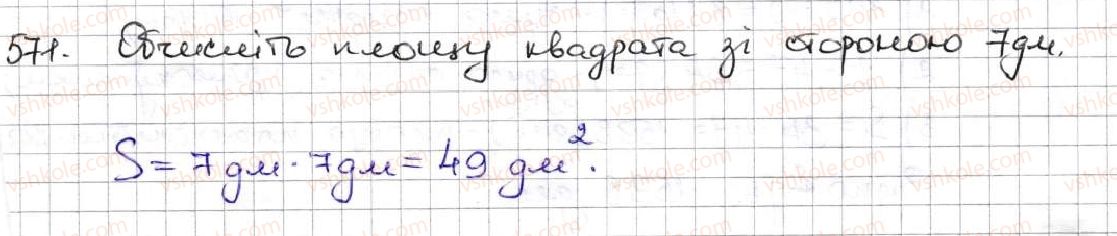 571. Обчисліть площу квадрата зі стороною 7дм.
S = 7 дм · 7дм = 49 дм².